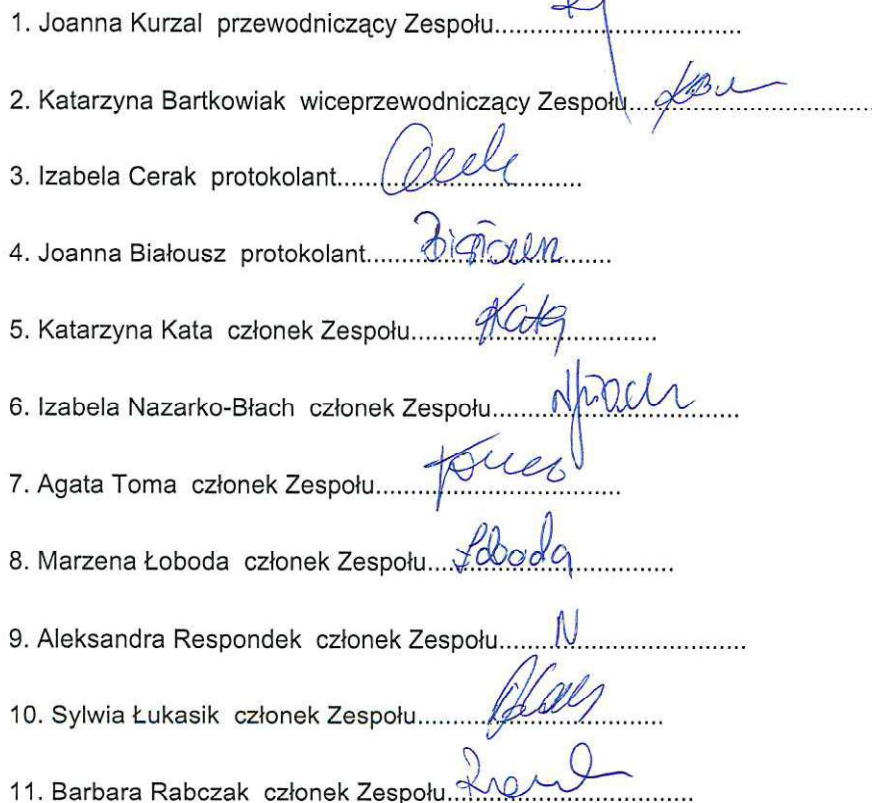 1. Joanna Kurzal przewodniczący Zespołu..................................
2. Katarzyna Bartkowiak wiceprzewodniczący Zespołu..................................
3. Izabela Cerak protokolant..................................
4. Joanna Białousz protokolant..................................
5. Katarzyna Kata członek Zespołu.......Kata..................
6. Izabela Nazarko-Błach członek Zespołu..................................
7. Agata Toma członek Zespołu..................................
8. Marzena Łoboda członek Zespołu....Łoboda..............
9. Aleksandra Respondek członek Zespołu.......N......................
10. Sylwia Łukasik członek Zespołu..................................
11. Barbara Rabczak członek Zespołu..................................